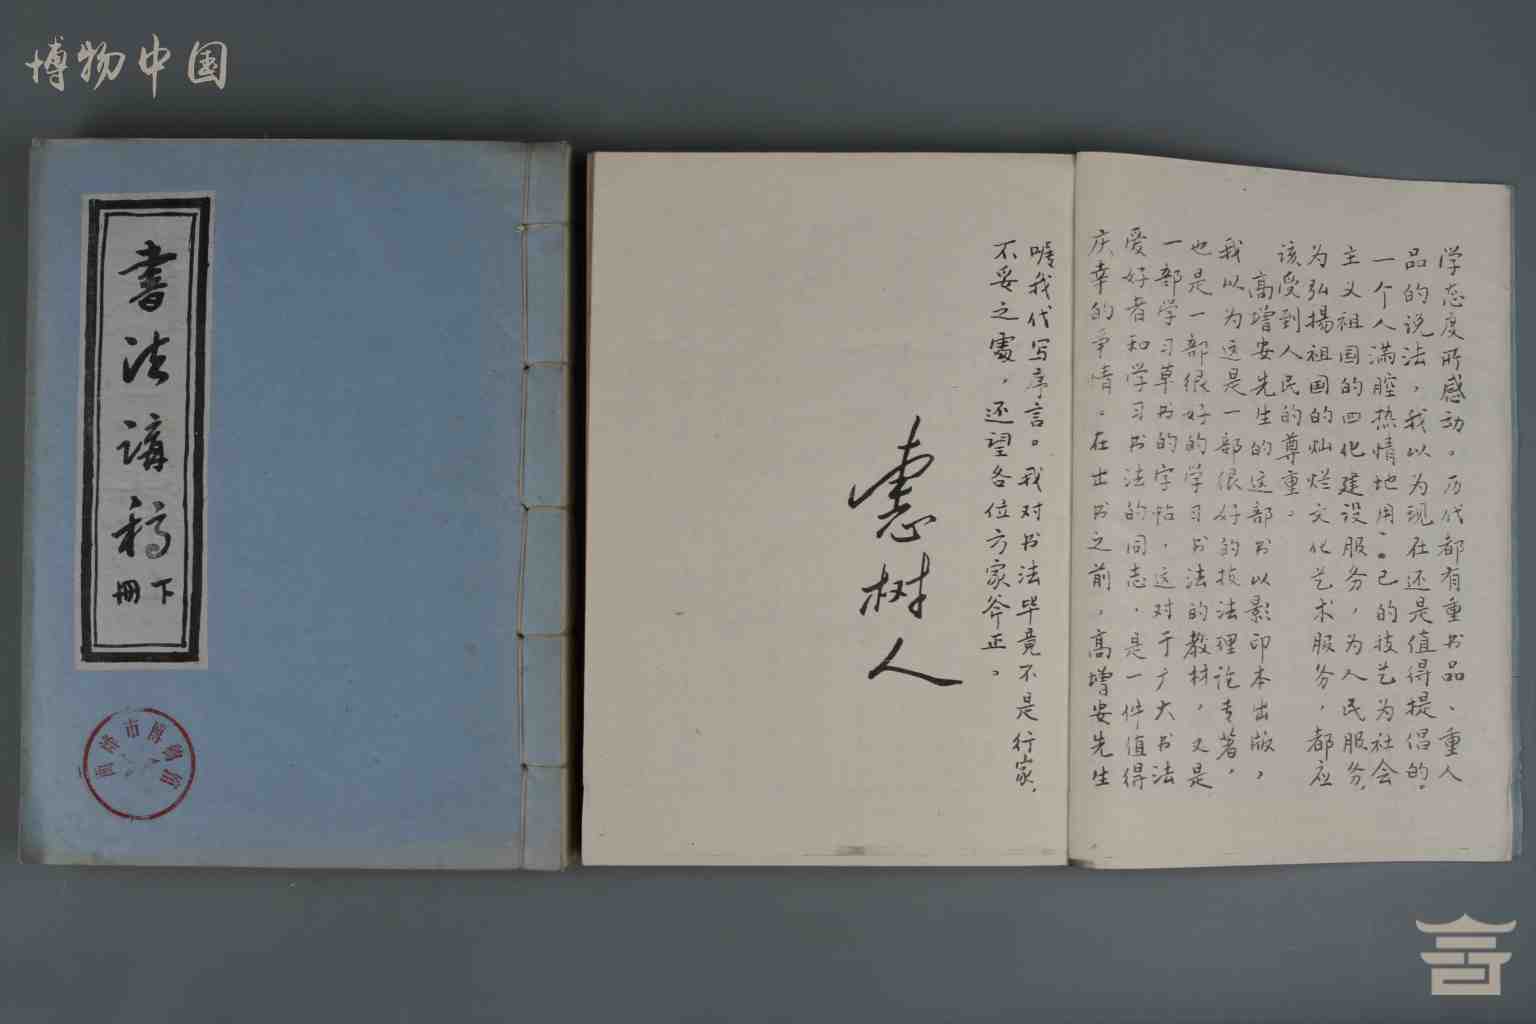 博物中国
書法講稿
下册
学态度所感动。历代都有重书品、重人
品的说法，我以为现在还是值得提倡的。
一个人满腔热情地用自己的技艺为社会
主义祖国的四化建设服务，为人民服务，
为弘揚祖国的灿烂文化艺术服务，都应
该受到人民的尊重。
高增安先生的这部书以影印本出版，
我以为这是一部很好的技法理论专著，
也是一部很好的学习书法的教材，又是
一部学习草书的字帖，这对于广大书法
爱好者和学习书法的同志，是一件值得
庆幸的事情。在出书之前，高增安先生
嘱我代写序言。我对书法毕竟不是行家，
不妥之處，还望各位方家斧正。
树人
市博物館